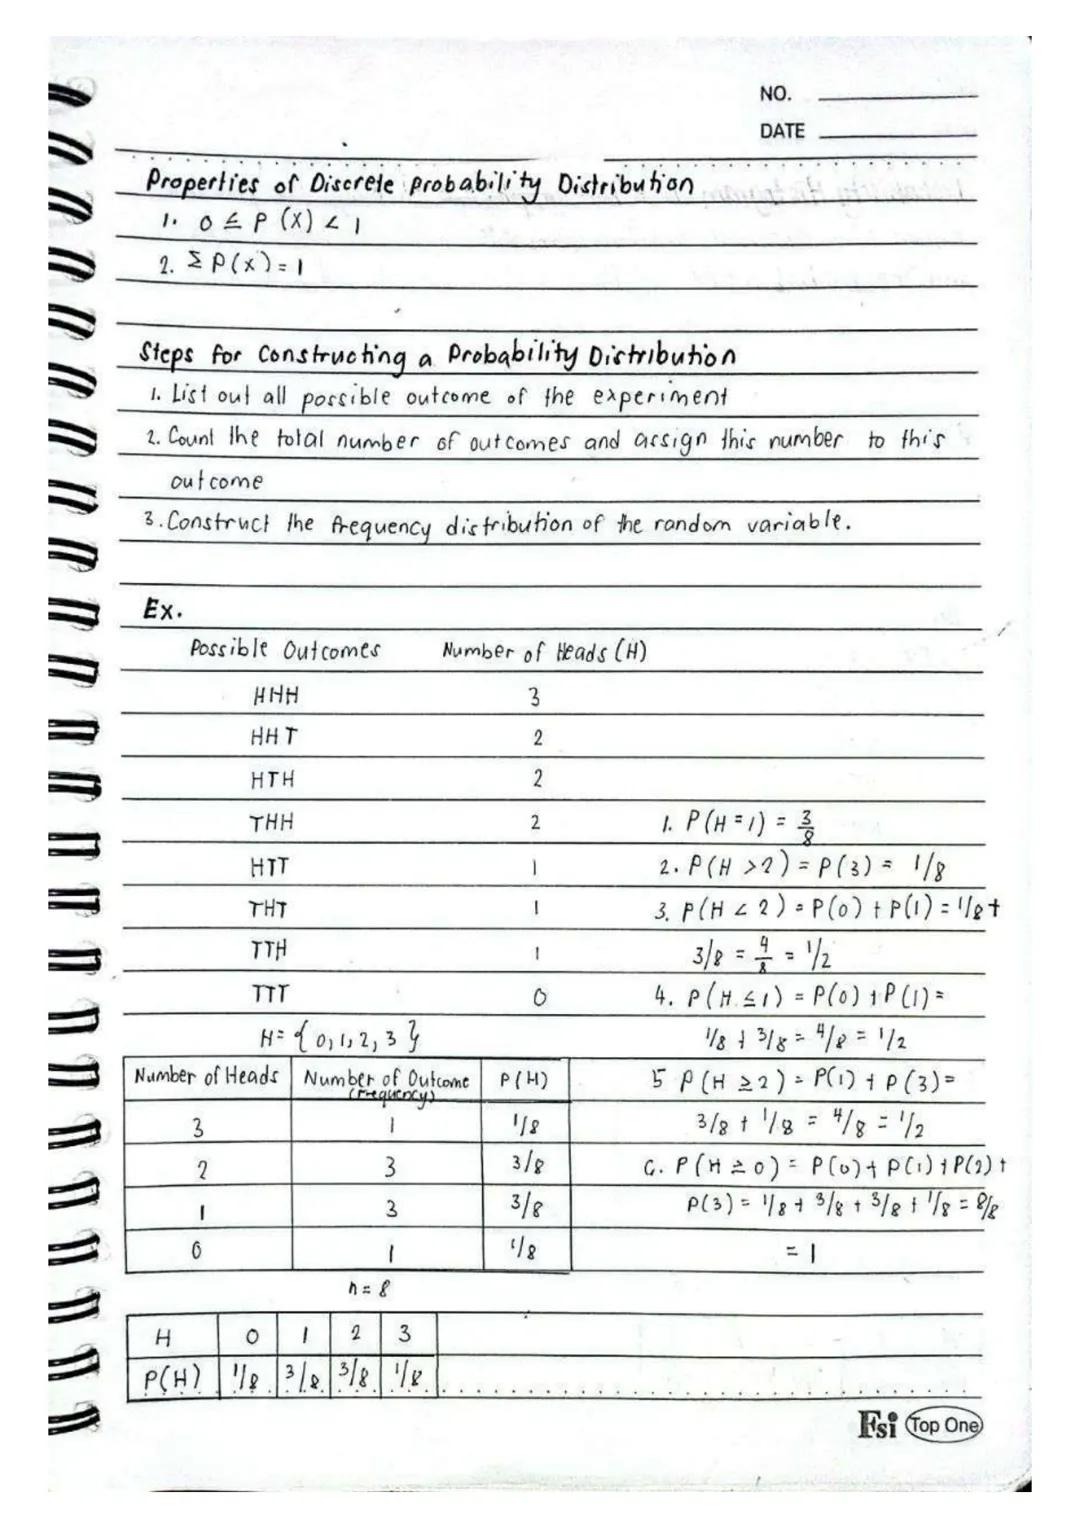 NO.
DATE
Properties of Discrete Probability Distribution
1. 0 ≤ P (X) < 1
2. Σ P(x) = 1
Steps for Constructing a Probability Distribution
1. List out all possible outcome of the experiment
2. Count the total number of outcomes and assign this number to this
outcome
3. Construct the frequency distribution of the random variable.
Ex.
Possible Outcomes Number of Heads (H)
HHH 3
HHT 2
HTH 2
THH 2 1. P(H=1) = 3/8
HTT 1 2. P(H >2) = P(3) = 1/8
THT 1 3. P(H < 2) = P(0) + P(1) = 1/8 +
TTH 1 3/8 = 4/8 = 1/2
TTT 0 4. P(H ≤ 1) = P(0) + P(1) =
H = {0, 1, 2, 3} 1/8 + 3/8 = 4/8 = 1/2
Number of Heads Number of Outcome (Frequency) P(H) 5 P(H ≥ 2) = P(1) + P(3) =
3 1 1/8 3/8 + 1/8 = 4/8 = 1/2
2 3 3/8 6. P(H ≥ 0) = P(0) + P(1) + P(2) +
1 3 3/8 P(3) = 1/8 + 3/8 + 3/8 + 1/8 = 8/8
0 1 1/8 = 1
n = 8
H 0 1 2 3
P(H) 1/8 3/8 3/8 1/8
Fsi Top One